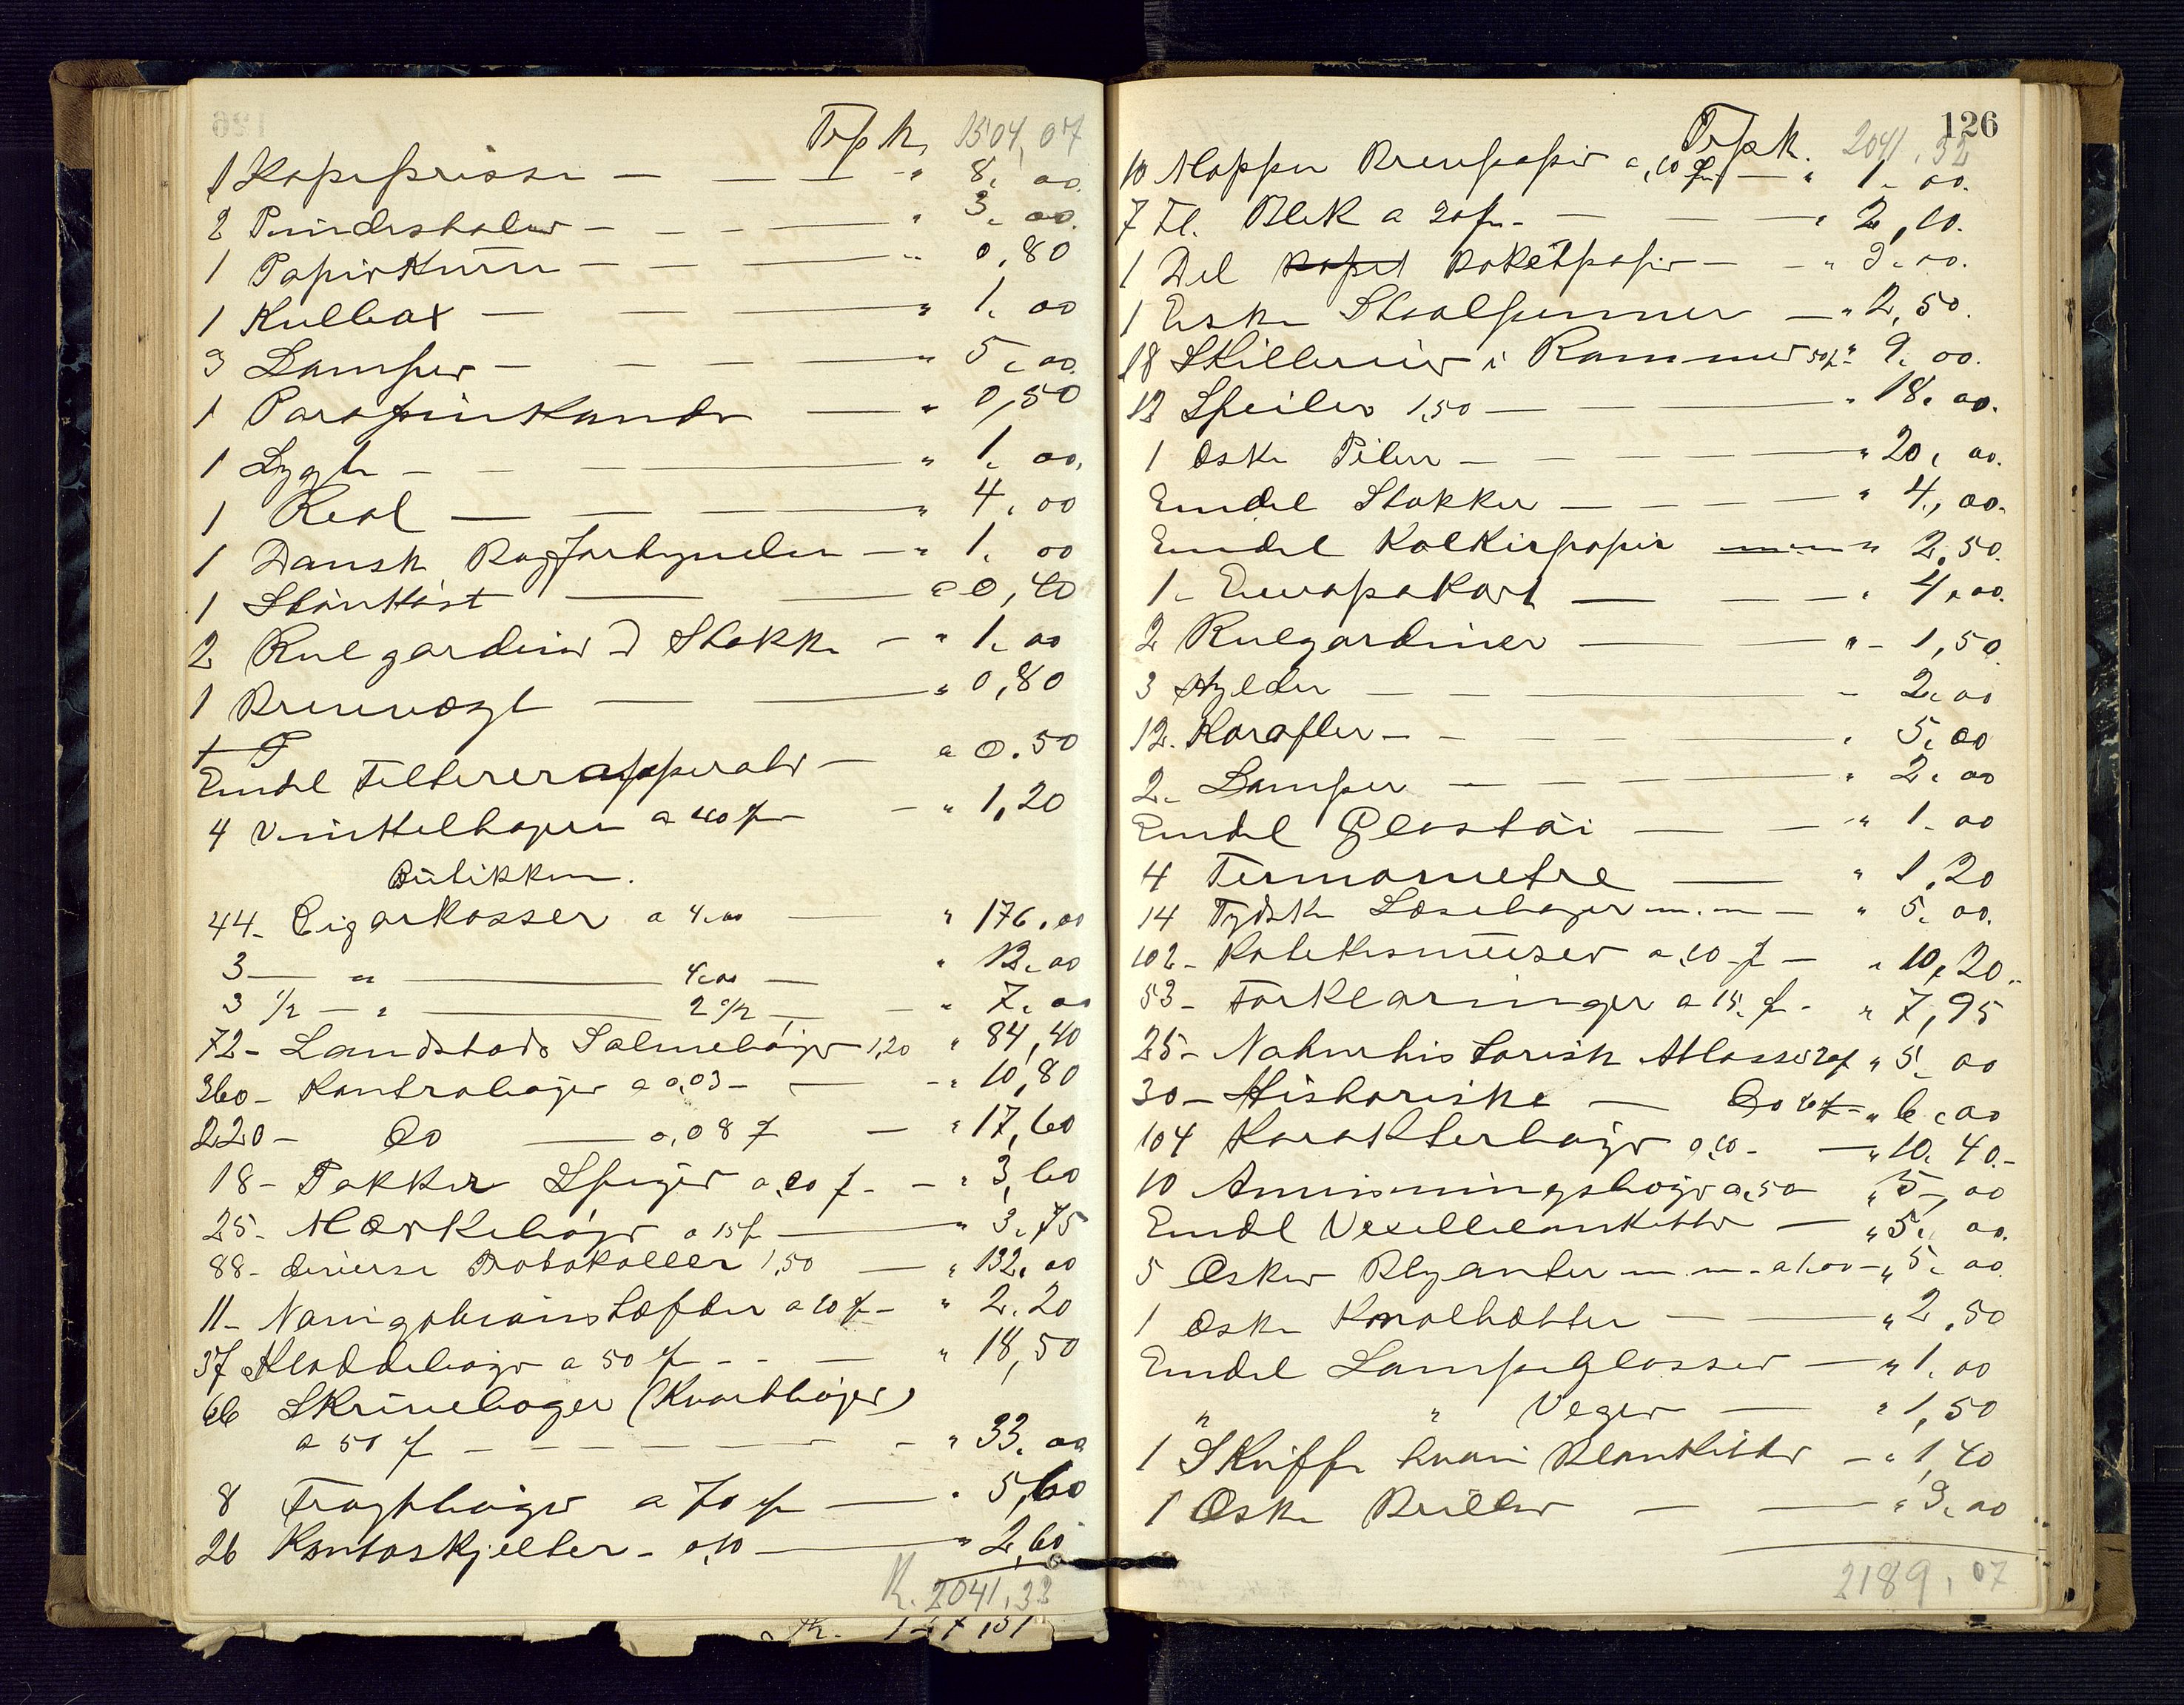 Trspk. 1504,07
1 Kopipresse — — — " 8. 00.
2 Pindestoler — — — " 3. 00.
1 Papirkurv — — — " 0,80
1 Kulbox — — — " 1. 00
3 Lamper — — — " 5. 00.
1 Parafinkande — " 0,50
1 Lygte — — — " 1. 00.
1 Reol — — — " 4. 00
1 Dansk — " 1. 00
1 Støvkost — — " 0,40
2 Rulgardiner Stokke — " 1. 00
1 Brevvægt — — " 0,80
Endel Filtrererapperater — " 0.50
4 Vinkelhager a 40 — " 1,20
Butikken.
44- Cigarkasser a 4.00 — " 176.00
3 — " — 4.00 — " 12.00
3 1/2 — " — 2 — " 7.00
72- Landstads Salmebøger 1,20 " 84,40
360- Kontrabøger a 0,03 — — " 10,80
220- Do — 0,08 — " 17,60
18- Pakker Spiger a 20 — " 3,60
25- Mærkebøger a 15 — " 3,75
88- diverse Protokoller 1,50 — " 132,00
11- a 20 — " 2.20
37 Kladdebøger a 50 — — " 18,50
66 Skrivebøger (Kvartbøger)
a 50 — — — — " 33.00
8 Fragtbøger a 70 — " 5,60
26 - 0,10 — " 2,60
K. 2041,32
126
Trspk. 2041,32
10 Mapper Brevpapir a 10 — " 1. 00.
7 Fl. Blek a 30 — — " 2,10.
1 Del Paketpapir — " 3. 00.
1 Eske Staalpenner — " 2,50.
18 Skillerier i Rammer 50 " 9. 00.
12 Speiler 1,50 — — " 18. 00.
1 Æske Piber — — — " 20. 00.
Endel Stokker — — — " 4. 00.
Endel Kalkirpapir " 2.50.
1- Europakart — — — " 4,00.
2 Rulgardiner — — " - 1,50
3 Hylder — — — 2. 00
12. Karafler — — — " 5. 00
2- Lamper — — — " 2. 00
Endel Glastøi — — " 1. 00
4 Termometre — " 1,20
14 Tydske Læsebøger m.m — " 5. 00.
102- Katekismuser a 10 — " 10,20
53- Forklaringer a 15 - " 7,95
25- Naturhistorisk Atlasser 20 " 5. 00
30- Historiske — Do 20 " 6. 00
104 Karakterbøger a 10 — " 10. 40.-
10 Anvisningsbøger a 50 " 5,00
Endel Vexelblanketter — " 5. 00.
5 Æsker Blyanter m.m. a 1.00 " 5. 00
1 Æske Knalhætter — — " 2,50
Endel Lampeglasser — " 1. 00
" " Veger — " 1,50
1 Skuffe Blanketter — " 1,40
1 Æske Briller — — " 3. 00
2189,07